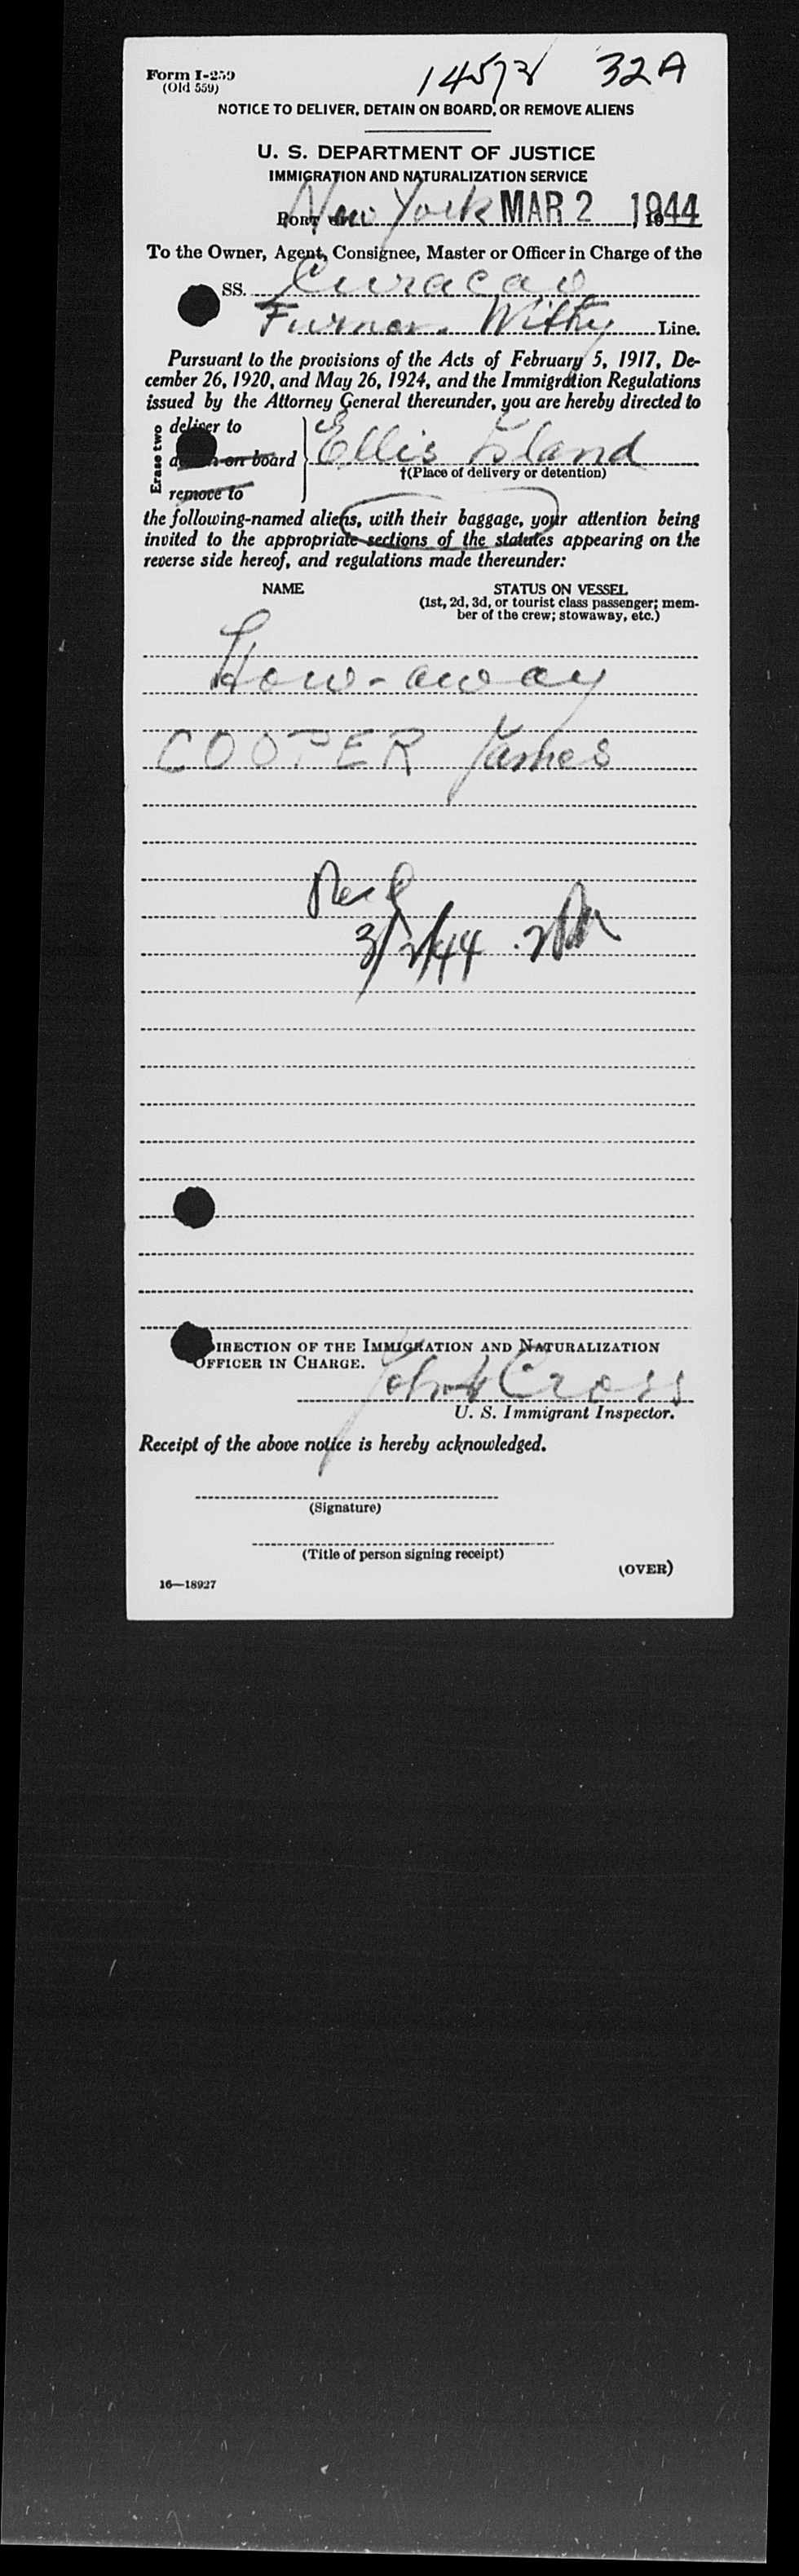 Form I-259
(Old 559)
32A
NOTICE TO DELIVER, DETAIN ON BOARD, OR REMOVE ALIENS
U. S. DEPARTMENT OF JUSTICE
IMMIGRATION AND NATURALIZATION SERVICE
PORT New York MAR 2 1944
To the Owner, Agent, Consignee, Master or Officer in Charge of the
SS. Curacao
Furness Withy Line.
Pursuant to the provisions of the Acts of February 5, 1917, De-
cember 26, 1920, and May 26, 1924, and the Immigration Regulations
issued by the Attorney General thereunder, you are hereby directed to
Erase two
deliver to
on board
remove to
Ellis Island
†(Place of delivery or detention)
the following-named aliens, with their baggage, your attention being
invited to the appropriate sections of the statutes appearing on the
reverse side hereof, and regulations made thereunder:
NAME
STATUS ON VESSEL
(1st, 2d, 3d, or tourist class passenger; mem-
ber of the crew; stowaway, etc.)
Stow-away
COOPER James
3/2/44
DIRECTION OF THE IMMIGRATION AND NATURALIZATION
OFFICER IN CHARGE.
Cross
U. S. Immigrant Inspector.
Receipt of the above notice is hereby acknowledged.
(Signature)
(Title of person signing receipt)
(OVER)
16—18927